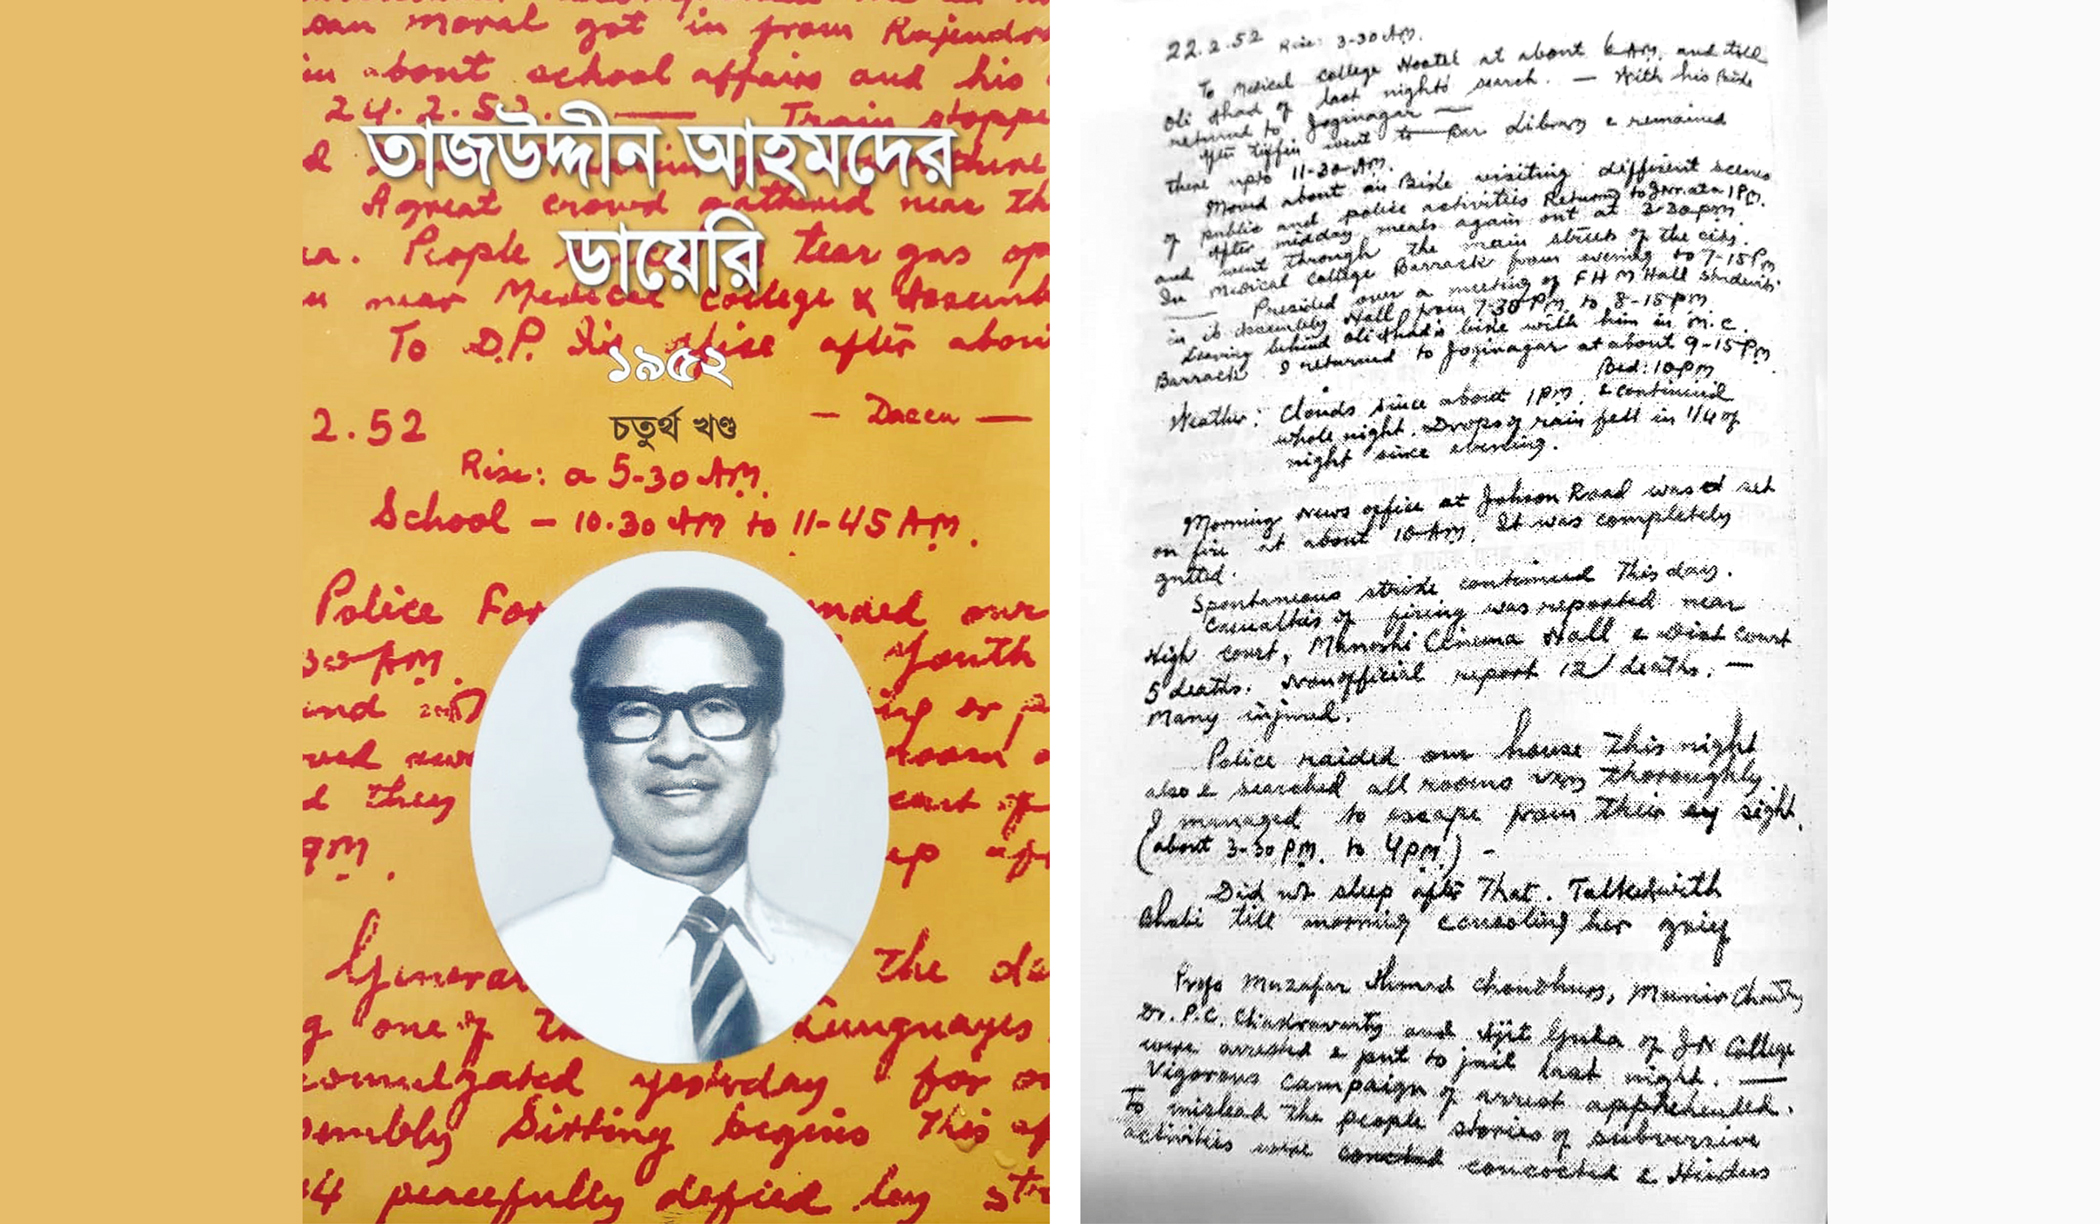 oan moral got in from Rajendra
in about school affairs and his
24.2.52. — Train stoppe
তাজউদ্দীন আহমদের
A great crowd gathered near th
ডায়েরি
People tear gas op
near Medical College & Assemb
To D.P. Inspr's office after abou
১৯৫২
2.52
চতুর্থ খণ্ড
— Dacca —
Rise: a 5-30 AM.
School — 10.30 AM to 11-45 AM.
Police For nded our
30 AM. Youth
and ing or p
ved awa room
d they
9m. ep af
General The da
g one of Languages
romulgated yesterday for on
sembly Sitting begins This af
44 peacefully defied by str
22.2.52 Rise: 3-30 AM.
To Medical College Hostel at about 6 AM. and told
Oli Ahad of last night's search. — With his Bike
returned to Joginagar —
After tiffin went to Bar Library & remained
there upto 11-30 AM.
Moved about on Bike visiting different scenes
of public and police activities Returned to Jnr. at a 1 PM.
After midday meals again out at 3-30 pm
and went through the main streets of the city.
In Medical College Barrack from evening to 7-15 PM
— Presided over a meeting of F H M Hall Students
in its Assembly Hall from 7-30 PM. to 8-15 pm.
Leaving behind Oli Ahad's bike with him in M.C.
Barrack I returned to Joginagar at about 9-15 PM.
Bed: 10 pm
Weather: Clouds since about 1 PM. & continued
whole night. Drops of rain fell in 1/4 of
night since evening.
Morning News office at Johson Road was set
on fire at about 10 AM. It was completely
gutted.
Spontaneous strike continued This day.
Casualties of firing was reported near
High court, Manoshi Cinema Hall & Dist court
5 deaths. Nonofficial report 12 deaths. —
Many injured.
Police raided our house This night
also & searched all rooms very thoroughly
I managed to escape from their ey sight.
(about 3-30 PM. to 4 pm.) –
Did not sleep after That. Talked with
Bhabi till morning consoling her grief
Profs Muzafar Ahmad Chowdhury, Munir Chowdhury
Dr. P.C. Chakravarty and Ajit Guha of J.N College
were arrested & put to jail last night. —
Vigorous campaign of arrest apprehended.
To mislead the people stories of subversive
activities were concocted & Hindus